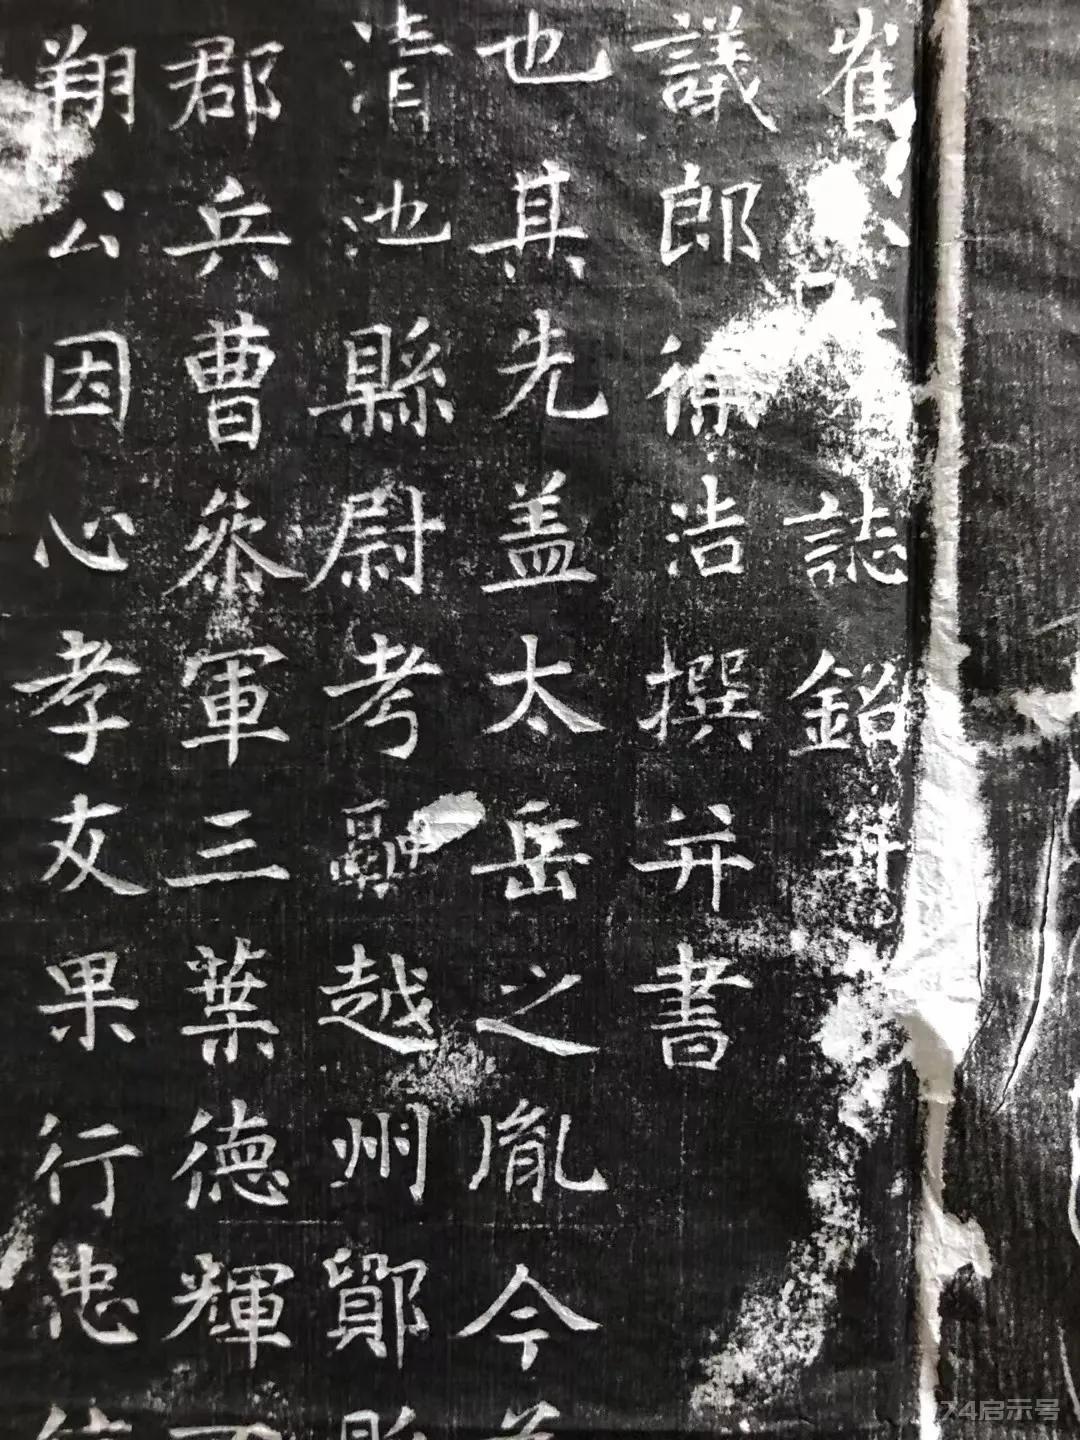 崔誌銘并
議郎徐浩撰并書
也其先盖太岳之胤今
清池縣尉考越州鄮縣
郡兵曹叅軍三葉德輝
翔公因心孝友果行忠
74启示号